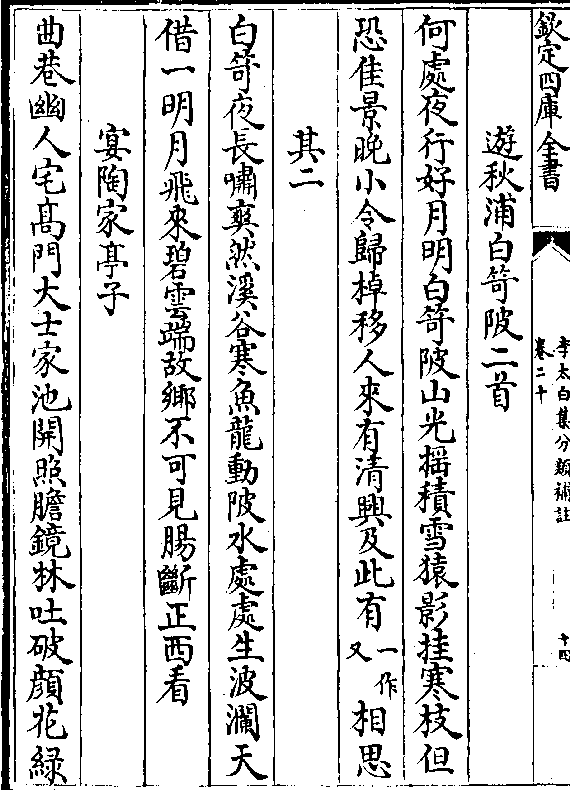 欽定四庫全書
李太白集分類補註
卷二十
十四
遊秋浦白笴陂二首
何處夜行好月明白笴陂山光揺積雪猿影挂寒枝但
恐佳景晚小令歸棹移人來有清興及此有一作又相思
其二
白笴夜長嘯爽然溪谷寒魚龍動陂水處處生波瀾天
借一明月飛來碧雲端故鄉不可見腸斷正西看
宴陶家亭子
曲巷幽人宅髙門大士家池開照膽鏡林吐破顔花緑